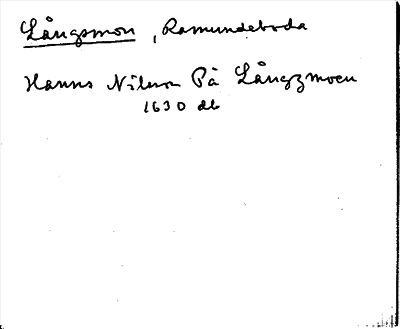 Långsmon, Ramundeboda
Hanns Nilsson På Långzmoen
1630 db